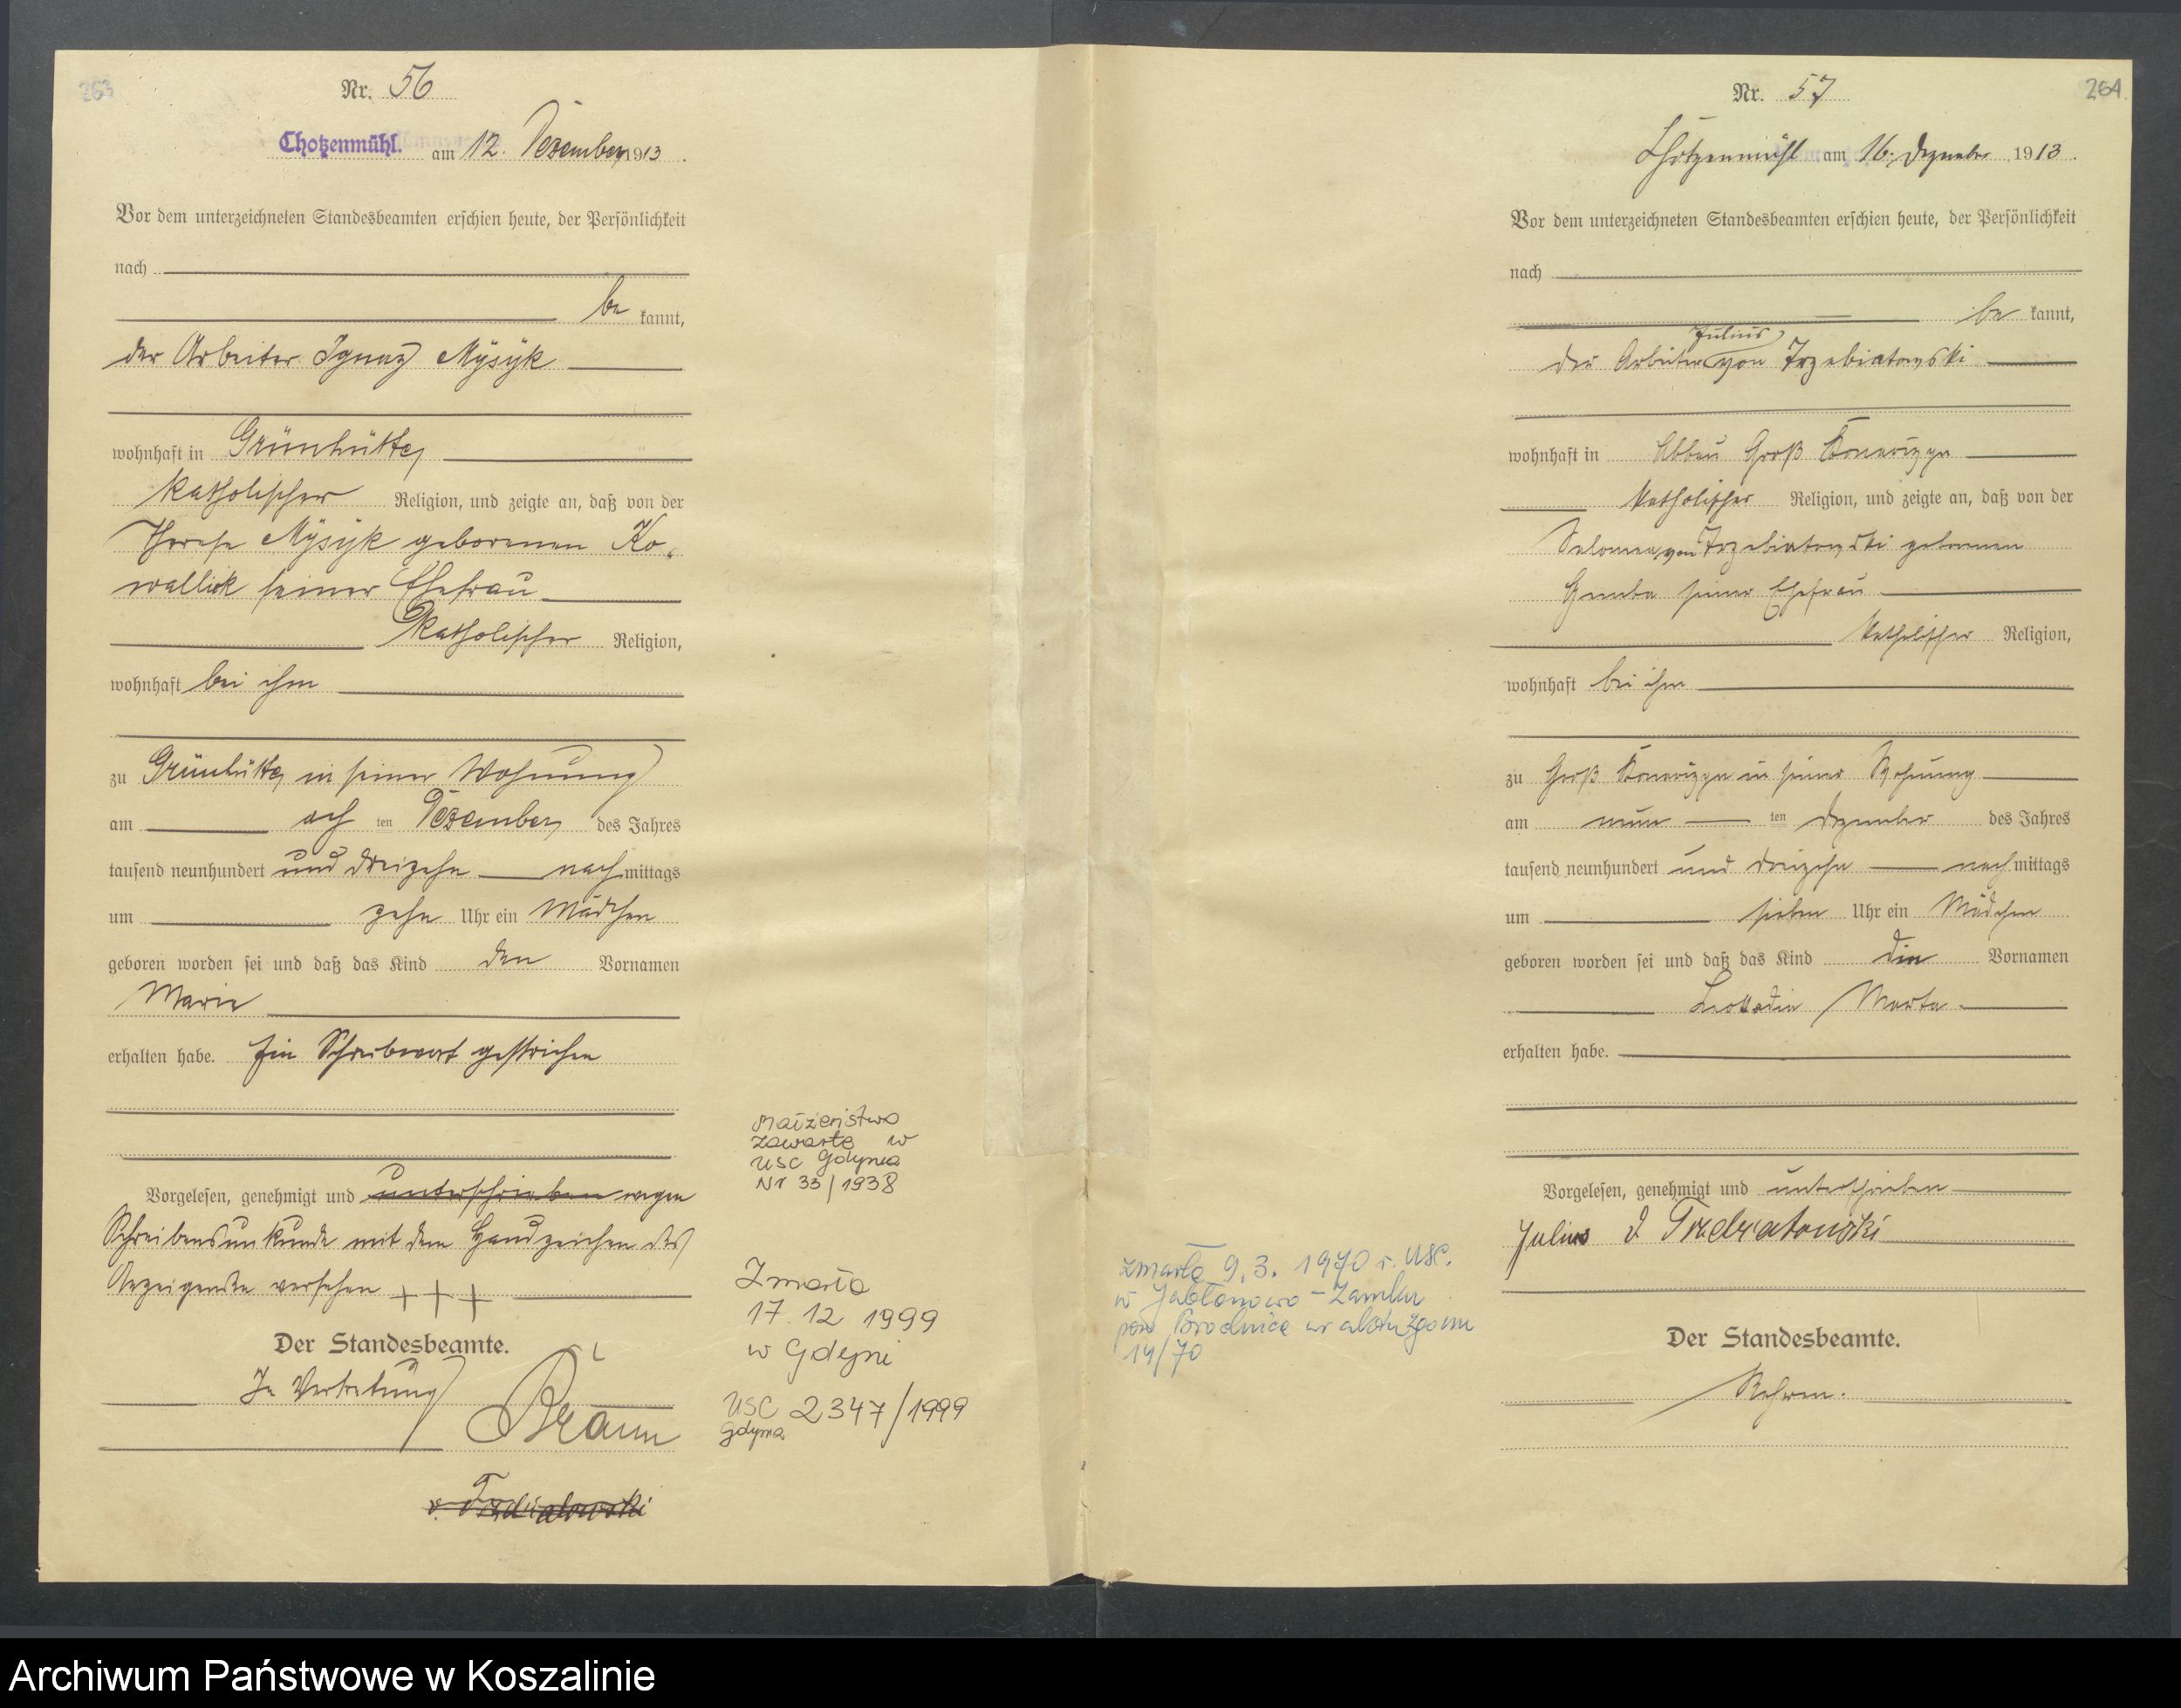 263
Nr. 56
Chotzenmühl. am 12. Dezember 1913.
Vor dem unterzeichneten Standesbeamten erschien heute, der Persönlichkeit
nach
be kannt,
der Arbeiter Ignaz Mÿsÿk
wohnhaft in Grünhütte,
katholischer Religion, und zeigte an, daß von der
Therese Mÿsÿk geborenen Ko-
wallick seiner Ehefrau
katholischer Religion,
wohnhaft bei ihm
zu Grünhütte, in seiner Wohnung
am ach ten Dezember des Jahres
tausend neunhundert und dreizehn nach mittags
um zehn Uhr ein Mädchen
geboren worden sei und daß das Kind den Vornamen
Marie
erhalten habe. Ein Schreibwort gestrichen
Vorgelesen, genehmigt und unterschrieben wegen
Schreibensunkunde mit dem Handzeichen des
Anzeigenden versehen +++
Der Standesbeamte.
In Vertretung
Małżeństwo
zawarte w
USC Gdynia
Nr 33/1938
Zmarła
17.12 1999
w Gdyni
USC 2347/1999
Gdynia
264
Nr. 57
Chotzenmühl am 16. Dezember 1913.
Vor dem unterzeichneten Standesbeamten erschien heute, der Persönlichkeit
nach
be kannt,
Julius
der Arbeiter von Trzebiatowski
wohnhaft in Abbau Groß Konarczyn
katholischer Religion, und zeigte an, daß von der
Salomea von Trzebiatowski geborenen
seiner Ehefrau
katholischer Religion,
wohnhaft bei ihm
zu Groß Konarczyn in seiner Wohnung
am neun ten Dezember des Jahres
tausend neunhundert und dreizehn nach mittags
um sieben Uhr ein Mädchen
geboren worden sei und daß das Kind die Vornamen
Leokadia Marta
erhalten habe.
Vorgelesen, genehmigt und unterschrieben
Julius
Der Standesbeamte.
zmarła 9.3. 1970 r. USC.
w Jabłonowo - Zamku
pow Brodnica nr aktu zgonu
14/70
Archiwum Państwowe w Koszalinie